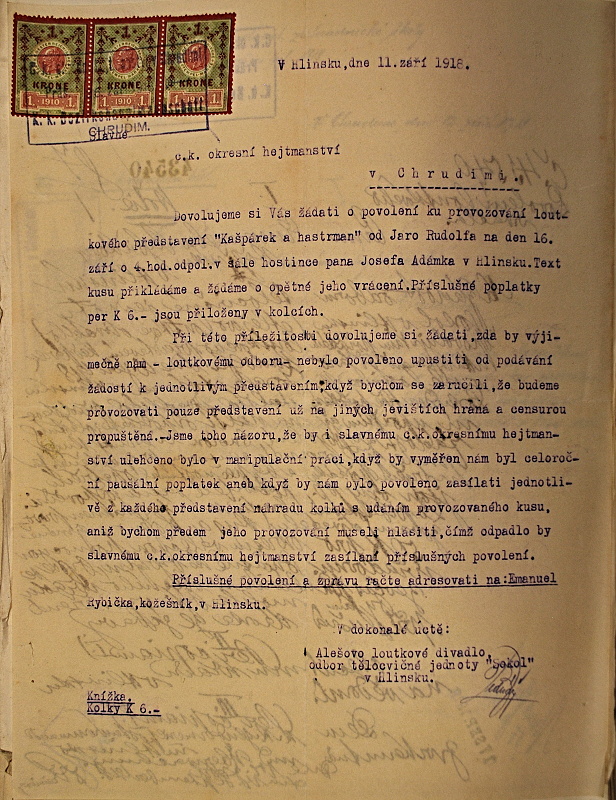 1 1 1
KRONE KRONE KRONE
1 1910 1 1 1910 1 1 1910 1
CHRUDIM.
V Hlinsku,dne 11.září 1918.
Slavné
c.k. okresní hejtmanství
v Chrudimi.
43540
Dovolujeme si Vás žádati o povolení ku provozování lout-
kového představení "Kašpárek a hastrman" od Jaro Rudolfa na den 16.
září o 4.hod.odpol.v sále hostince pana Josefa Adámka v Hlinsku.Text
kusu přikládáme a žádáme o opětné jeho vrácení.Příslušné poplatky
per K 6.- jsou přiloženy v kolcích.
Při této příležitosti dovolujeme si žádati,zda by výji-
mečně nám - loutkovému odboru- nebylo povoleno upustiti od podávání
žádostí k jednotlivým představením,když bychom se zaručili,že budeme
provozovati pouze představení už na jiných jevištích hraná a censurou
propuštěná.-Jsme toho názoru,že by i slavnému c.k.okresnímu hejtman-
ství ulehčeno bylo v manipulační práci,když by vyměřen nám byl celoroč-
ní paušální poplatek aneb když by nám bylo povoleno zasílati jednotli-
vě z každého představení náhradu kolků s udáním provozovaného kusu,
aniž bychom předem jeho provozování museli hlásiti,čímž odpadlo by
slavnému c.k.okresnímu hejtmanství zasílaní příslušných povolení.
Příslušné povolení a zprávu račte adresovati na:Emanuel
Rybička,kožešník,v Hlinsku.
V dokonalé úctě:
Alešovo loutkové divadlo,
odbor tělocvičné jednoty "Sokol"
v Hlinsku.
Knížka.
Kolky K 6.-